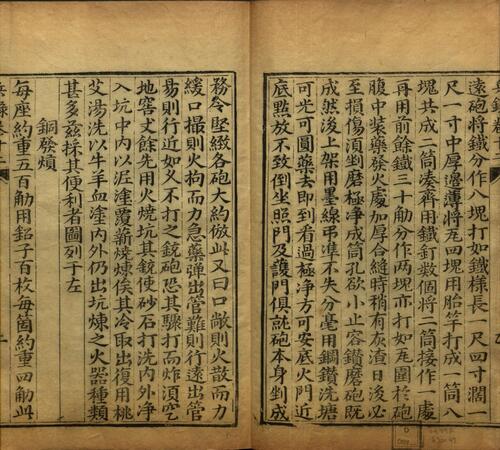 遠砲將鐵分作八塊打如鐵樣長一尺四寸濶一
尺一寸中厚邊薄將瓦四塊用胎竿打成一筒八
塊共成二筒凑齊用鐵釘數個將二筒接作一處
再用前餘鐵三十觔分作兩塊亦打如瓦圍於砲
腹中装藥發火處加厚合縫時稍有灰渣日後必
至損傷須剉磨極淨成筒孔欲小止容鑽磨砲既
成然後上架用墨線弔準不失分毫用鋼鑽洗塘
可光可圓藥去即到看過極淨方可安底火門近
底點放不致倒坐照門及護門俱就砲本身剉成
務令堅緻各砲大約倣此又曰口敞則火散而力
緩口撮則火拘而力急藥弹出管難則行遠出管
易則行近如乆不打之銃砲恐其驟打而炸須空
地窖丈餘先用火燒坑其銃使砂石打洗内外净
入坑中内以泥塗覆薪燒煉俟其冷取出復用桃
艾湯洗以牛羊血塗内外仍出坑煉之火器種類
甚多兹採其便利者圖列于左
銅發熕
每座約重五百觔用鉛子百枚每箇約重四觔此